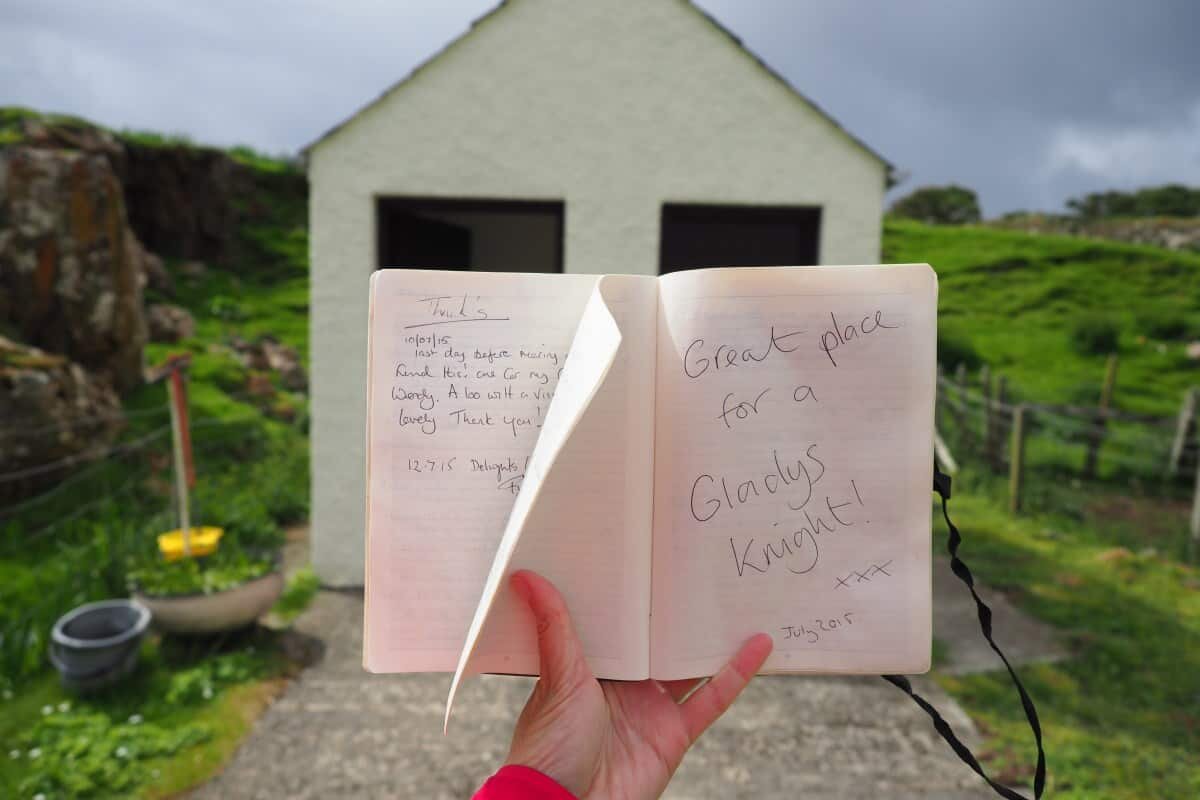 Thank's
10/07/15
last day before moving
find this! one for my
Wendy. A loo with a
lovely Thank you!
12.7.15 Delights
Great place
for a
Gladys
Knight!
xxx
July 2015